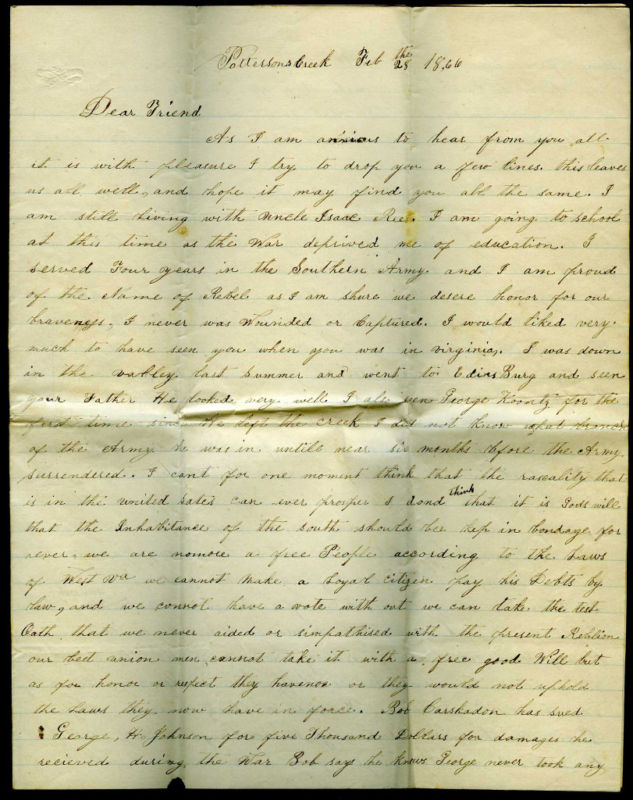 Pattersons Creek Feb the 28 1866
Dear Friend
As I am anxious to hear from you all
it is with pleasure I try to drop you a few lines. this leaves
us all well, and hope it may find you all the same. I
am still living with Uncle Isaac Rees. I am going to school
at this time as the War deprived me of education. I
served Four years in the Southern Army and I am proud
of the Name of Rebel as I am shure we desere honor for our
braveness, I never was Wounded or Captured. I would liked very
much to have seen you when you was in virginia, I was down
in the valley last summer and went to Edins Burg and seen
your Father He looked very well I also seen George Koontz for the
first time since He left the creek I did not know what branch
of the Army he was in untill near six months before the Army
surrendered. I cant for one moment think that the rascality that
is in the united sates can ever prosper I dond think that it is Gods will
that the Inhabitance of the south should be kep in bondage for
never, we are nomore a free People according to the Laws
of West Va we cannot make a Loyal citizen pay his Debts by
Law, and we connot have a vote with out we can take the test
Oath that we never aided or simpathised with the present Reblion
our best union men cannot take it with a free good Will but
as for honor or respect they have non or they would not uphold
the Laws they now have in force. Bob Carskadon has sued
George, H. Johnson for five Thousand Dollers for damages he
recieved during the War Bob says he knows George never took any